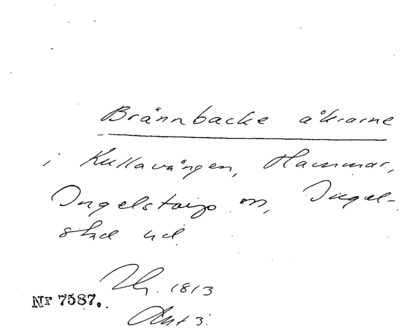 Brännbacke åkrarne
i Kullavången, Hammar,
Ingelstorps sn, Ingel-
stad hd.
1813
Nr 7587. Akt 3.